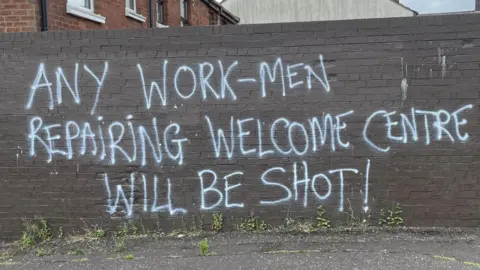 ANY WORK-MEN
REPAIRING WELCOME CENTRE
WILL BE SHOT!